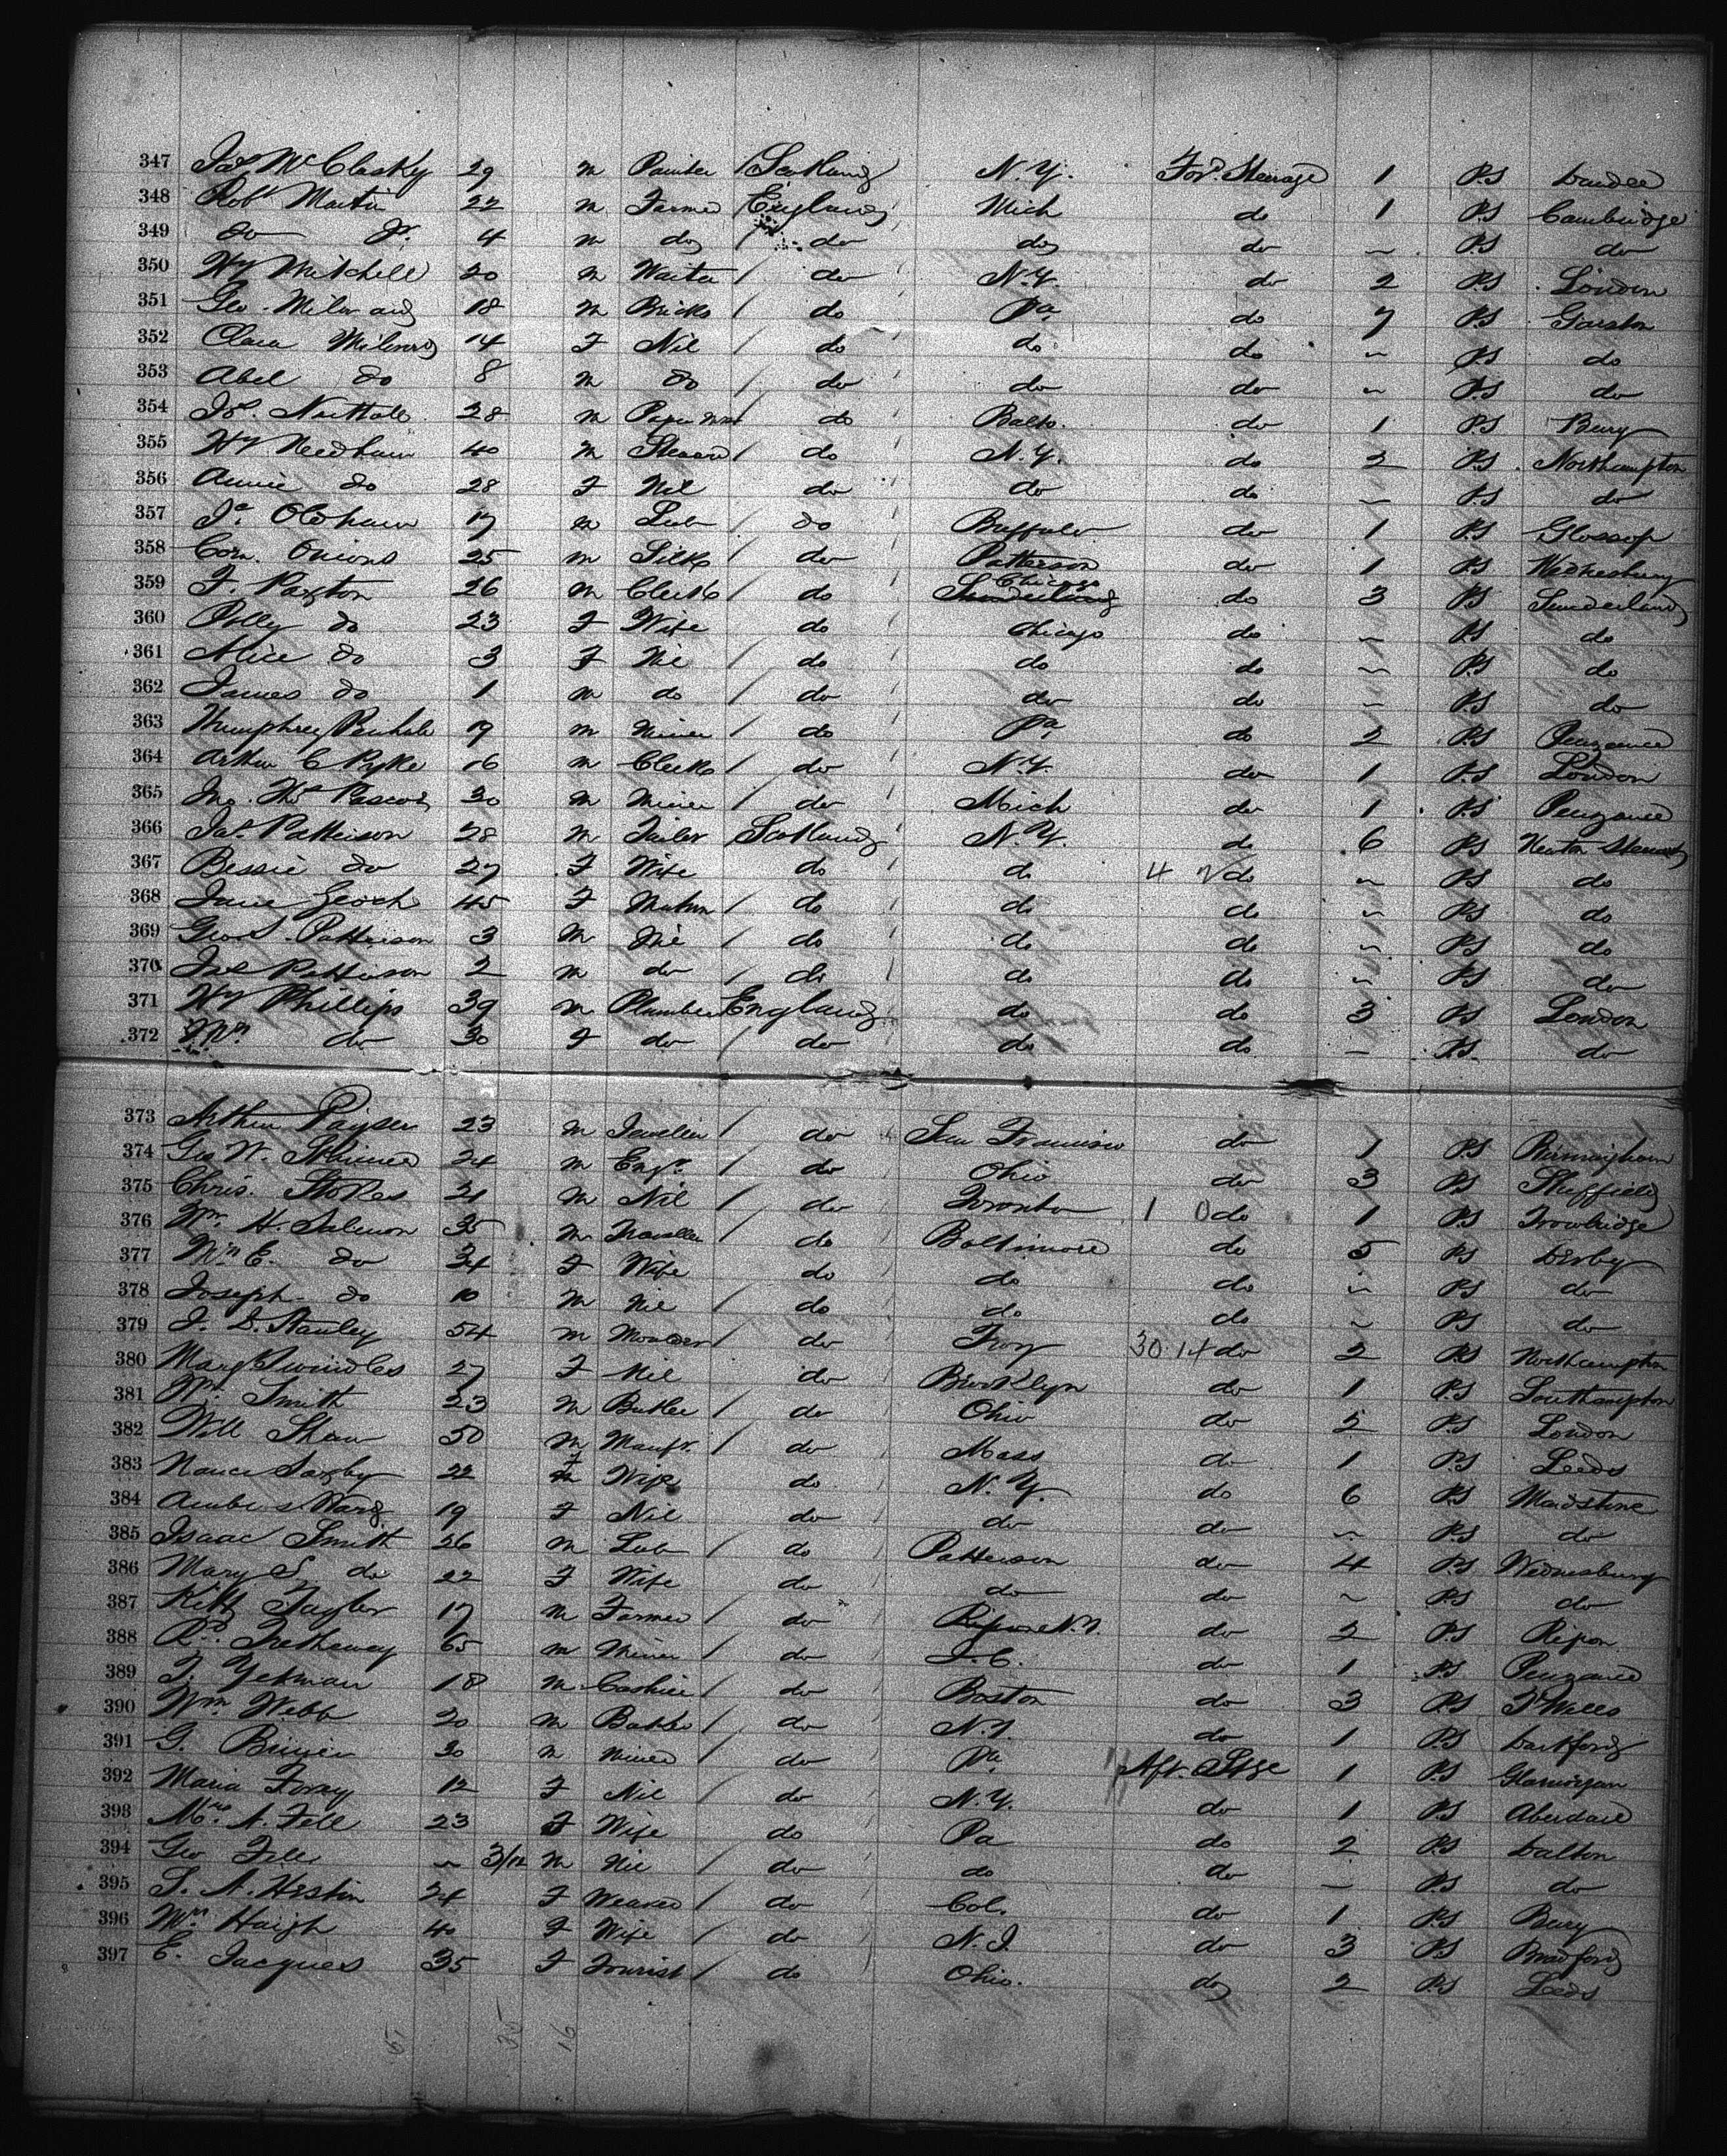 347 Jas McClosky 29 m Painter / Scotland N.Y. For. Steerage 1 P.S Dundee
348 Robt Martin 22 m Farmer / England Mich do 1 P.S Cambridge
349 do Jr. 4 m do / do do do ~ P.S do
350 Hy Mitchell 20 m Waiter / do N.Y. do 2 P.S London
351 Geo. Milward 18 m Bricks / do Pa do 7 P.S Garston
352 Clara Milward 14 F Nil / do do do ~ P.S do
353 Abel do 8 m do / do do do ~ P.S do
354 Jos. Nuttall 28 m Paper / do Balto. do 1 P.S Bury
355 Hy Needham 40 m Steward / do N.Y. do 2 P.S. Northampton
356 Annie do 28 F Nil do do do ~ P.S do
357 Ja. Oldham 17 m Lab / do Buffalo do 1 P.S Glossop
358 Corn. Onions 25 m Silk / do Patterson do 1 P.S Wednesbury
359 F. Paxton 26 m Clerk / do Sunderland Chicago do 3 P.S Sunderland
360 Polly do 23 F Wife do Chicago do ~ P.S do
361 Alice do 3 F Nil / do do do ~ P.S do
362 James do 1 m do / do do do ~ P.S do
363 Humphrey Penhale 19 m Miner / do Pa do 2 P.S Penzance
364 Arthur C Pyke 16 m Clerk / do N.Y. do 1 P.S London
365 Jno. Thos Pascoe 30 m Miner / do Mich do 1 P.S Penzance
366 Jas. Patterson 28 m Tailor / Scotland N.Y. do 6 P.S Newton Stewart
367 Bessie do 27 F Wife do do do ~ P.S do
368 Jane Geoch 45 F Matron / do do do ~ P.S do
369 Geo. Patterson 3 m Nil / do do do ~ P.S do
370 Jas Patterson 2 m do / do do do ~ P.S do
371 Hy Phillips 39 m Plumber England do do 3 P.S London
372 Mrs do 30 F do / do do do — P.S. do
373 Arthur 23 m Jeweller / do San Francisco do 1 P.S Birmingham
374 Geo W. Skinner 24 m Engr. / do Ohio do 3 P.S Sheffield
375 Chris. Stokes 21 m Nil / do Toronto 1 0 do 1 P.S Trowbridge
376 Wm. H. Salmon 35 m Traveller / do Baltimore do 5 P.S Derby
377 Mrs E. do 34 F Wife do do do ~ P.S do
378 Joseph do 10 m Nil / do do do ~ P.S do
379 J. D. Stanley 54 m Moulder / do Troy 30.14 do 2 P.S Northampton
380 Mary Swindles 27 F Nil do Brooklyn do 1 P.S Southampton
381 Wm Smith 23 m Butler / do Ohio do 2 P.S London
382 Will Shaw 50 m Manfr. / do Mass do 1 P.S Leeds
383 Saxby 22 F Wife do N.Y. do 6 P.S Maidstone
384 Ward 19 F Nil do do do ~ P.S do
385 Isaac Smith 26 m Lab / do Patterson do 4 P.S Wednesbury
386 Mary S. do 22 F Wife do do do ~ P.S do
387 Taylor 17 m Farmer / do do 2 P.S Ripon
388 Rd. Trethewey 65 m Miner / do do 1 P.S Penzance
389 T. Yeaman 18 m Cashier / do Boston do 3 P.S T Wells
390 Wm. Webb 20 m Baker / do N.Y. do 1 P.S Dartford
391 G. 30 m Miner / do Pa. Aft. Stge 1 P.S Glamorgan
392 Maria 12 F Nil / do N.Y. do 1 P.S Aberdare
393 Mrs. A. Fell 23 F Wife / do Pa do 2 P.S Dalton
394 Geo Fell ~ 3/12 m Nil / do do do — P.S do
395 S. A. 24 F Weaver / do Col. do 1 P.S Bury
396 Mrs Haigh 40 F Wife / do N.J. do 3 P.S Bradford
397 E. Jacques 35 F Tourist / do Ohio. do 2 P.S Leeds
35 16